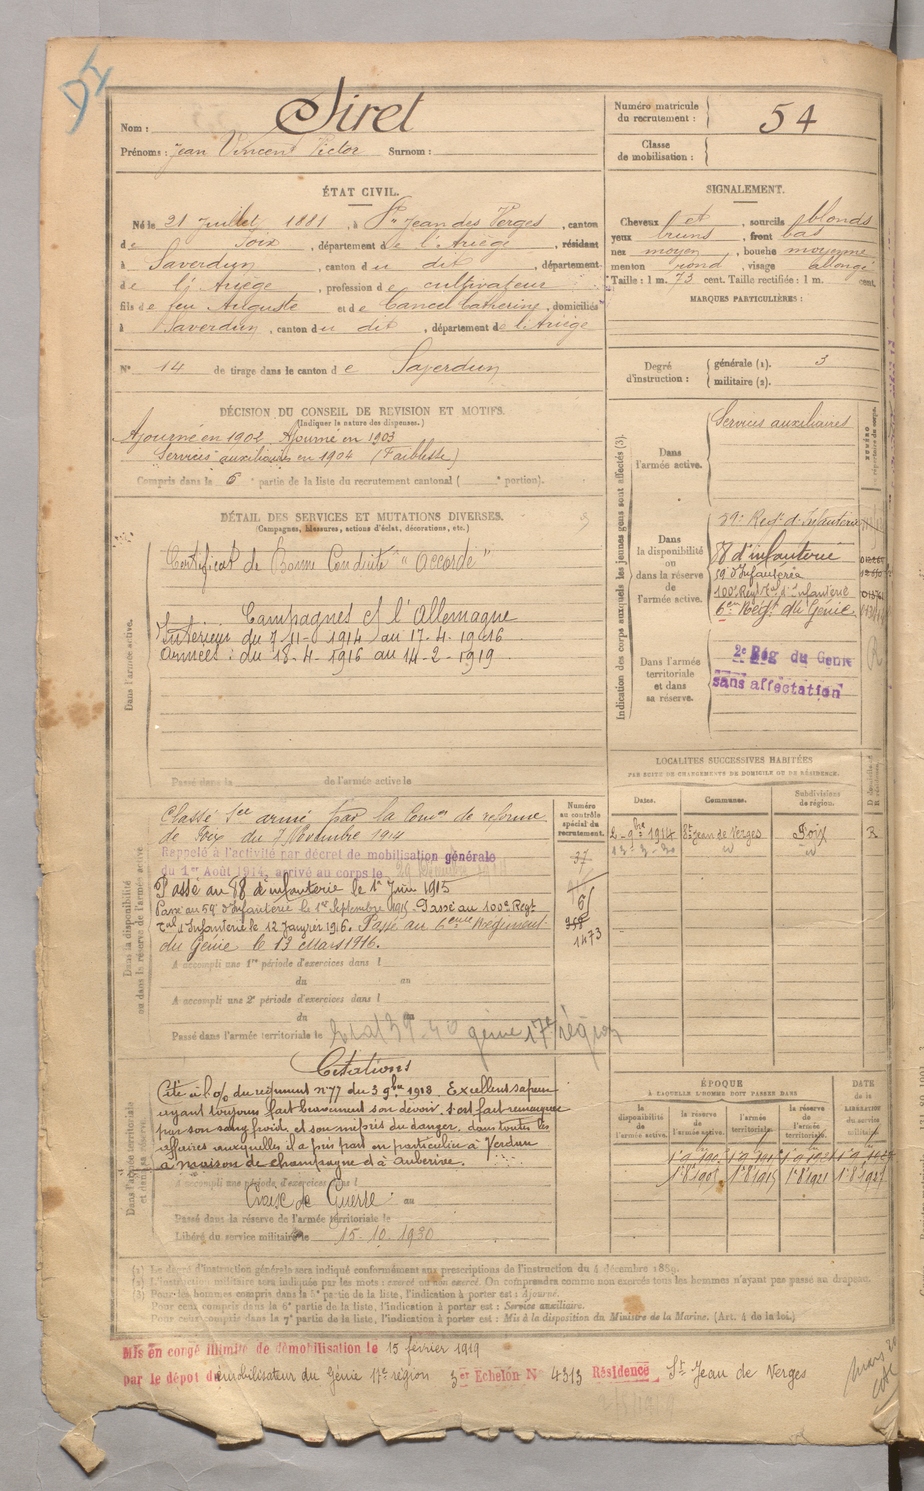 Nom : Siret
Prénoms : Jean Vincent Victor Surnom :
Numéro matricule du recrutement : 54
Classe de mobilisation :
ÉTAT CIVIL.
Né le 21 Juillet 1881, à St Jean des Verges, canton
de Foix, département de l'Ariège, résidant
à Saverdun, canton du dit, département
de l'Ariège, profession de cultivateur
fils de feu Auguste et de Cancel Catherine, domiciliés
à Saverdun, canton du dit, département de l'Ariège
N° 14 de tirage dans le canton de Saverdun
SIGNALEMENT.
Cheveux et, sourcils blonds
yeux bruns, front bas
nez moyen, bouche moyenne
menton rond, visage allongé
Taille : 1 m. 73 cent. Taille rectifiée : 1 m. cent.
MARQUES PARTICULIÈRES :
Degré d'instruction : générale (1). 3
militaire (2).
DÉCISION DU CONSEIL DE REVISION ET MOTIFS.
(Indiquer la nature des dispenses.)
Ajourné en 1902. Ajourné en 1903
Services auxiliaires en 1904 (Faiblesse)
Compris dans la 6e partie de la liste du recrutement cantonal ( e portion).
DÉTAIL DES SERVICES ET MUTATIONS DIVERSES.
(Campagnes, blessures, actions d'éclat, décorations, etc.)
Dans l'armée active.
Certificat de Bonne Conduite "Accordé"
Campagnes c/ l'Allemagne
Intérieur du 7-11-1914 au 17-4-1916
Armées : du 18-4-1916 au 14-2-1919
Passé dans la de l'armée active le
Indication des corps auxquels les jeunes gens sont affectés (3).
Dans l'armée active.
Services auxiliaires
Dans la disponibilité ou dans la réserve de l'armée active.
59e Régt d'Infanterie
88 d'infanterie
59 d'Infanterie
100e Régt Tal d'Infanterie
6eme Régt du Génie
Dans l'armée territoriale et dans sa réserve.
2e Rég du Génie
sans affectation
Dans la disponibilité ou dans la réserve de l'armée active
Classé Sce armé par la Comon de réforme
de Foix du 7 Novembre 1914
Rappelé à l'activité par décret de mobilisation générale
du 1er Août 1914, arrivé au corps le
Passé au 88 d'infanterie le 1er Juin 1915
Passé au 59e d'Infanterie le 1er Septembre 1915. Passé au 100e Regt
Tal d'Infanterie le 12 Janvier 1916. Passé au 6eme Régiment
du Génie le 13 Mars 1916.
A accompli une 1re période d'exercices dans l
du au
A accompli une 2e période d'exercices dans l
du au
Passé dans l'armée territoriale le
génie 17e région
Numéro au contrôle spécial du recrutement.
37
1473
LOCALITÉS SUCCESSIVES HABITÉES
PAR SUITE DE CHANGEMENTS DE DOMICILE OU DE RÉSIDENCE.
Dates. Communes. Subdivisions de région.
2-9bre 1914 St Jean de Verges Foix R
13-3-20 id id
Dans l'armée territoriale et dans sa réserve.
Citations
Cité à l'o/ du régiment n°77 du 3 9bre 1918. Excellent sapeur
ayant toujours fait bravement son devoir. s'est fait remarquer
par son sang froid, et son mépris du danger, dans toutes les
affaires auxquelles il a pris part en particulier à Verdun
à maison de champagne et à Auberive.
A accompli une période d'exercices dans l
Croix de Guerre
au
Passé dans la réserve de l'armée territoriale le
Libéré du service militaire le 15-10-1930
ÉPOQUE
A LAQUELLE L'HOMME DOIT PASSER DANS
la disponibilité de l'armée active. la réserve de l'armée active. l'armée territoriale. la réserve de l'armée territoriale.
DATE de la LIBÉRATION du service militaire.
(1) Le degré d'instruction générale sera indiqué conformément aux prescriptions de l'instruction du 4 décembre 1889.
(2) L'instruction militaire sera indiquée par les mots : exercé ou non exercé. On comprendra comme non exercés tous les hommes n'ayant pas passé au drapeau.
(3) Pour les hommes compris dans la 5e partie de la liste, l'indication à porter est : Ajourné.
Pour ceux compris dans la 6e partie de la liste, l'indication à porter est : Service auxiliaire.
Pour ceux compris dans la 7e partie de la liste, l'indication à porter est : Mis à la disposition du Ministre de la Marine. (Art. 4 de la loi.)
Mis en congé illimité de démobilisation le 15 février 1919
par le dépôt démobilisateur du Génie 17e région 3er Echelon N° 4313 Résidence St Jean de Verges